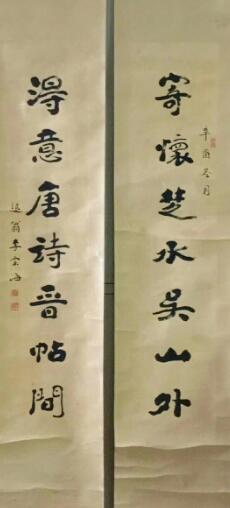 寄懷楚水吳山外
辛酉冬月
得意唐詩晉帖間
翁李